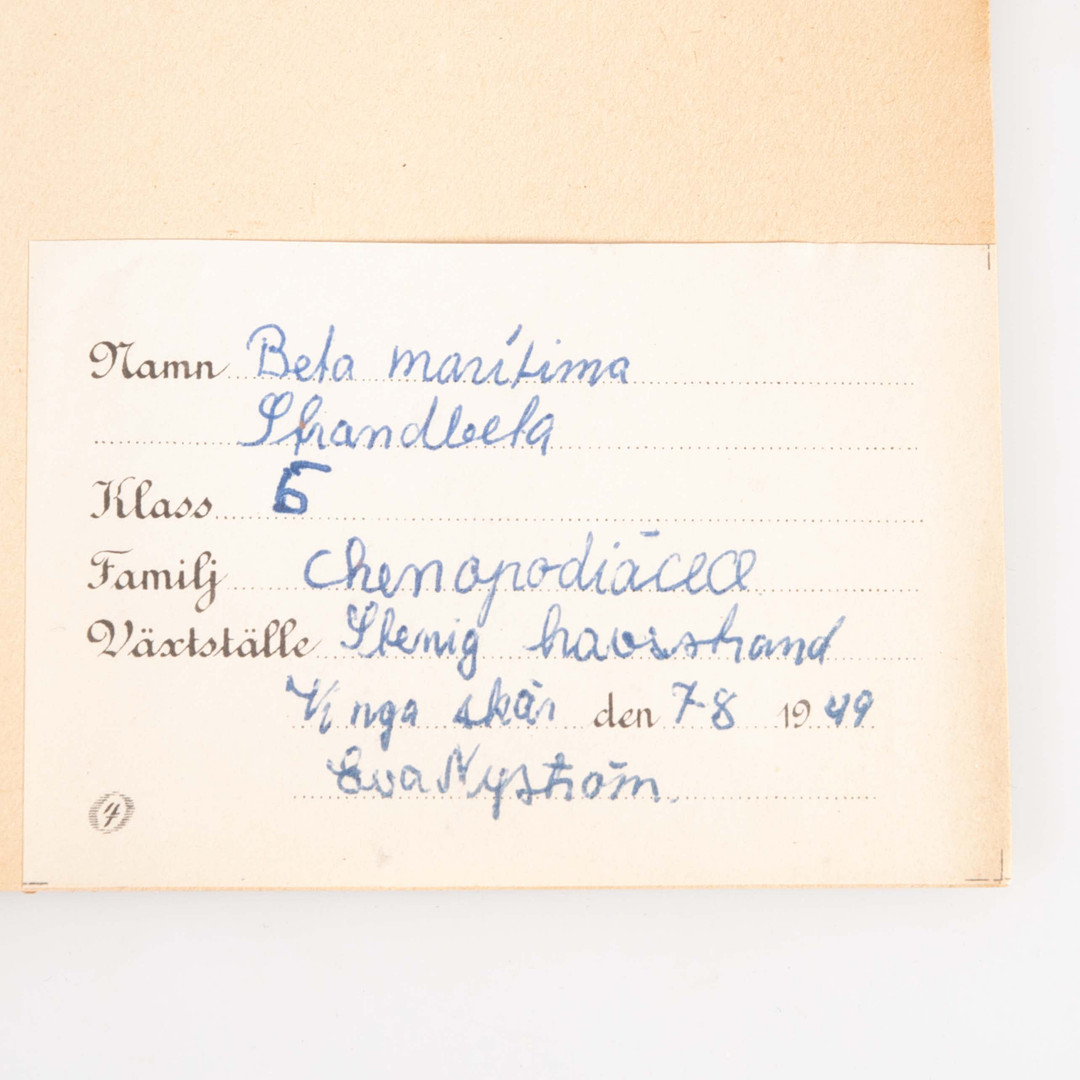 Namn Beta marítima
Strandbeta
Klass 5
Familj Chenopodiáceæ
Växtställe Stenig havsstrand
Vinga skär den 7-8 1949
Eva Nyström.